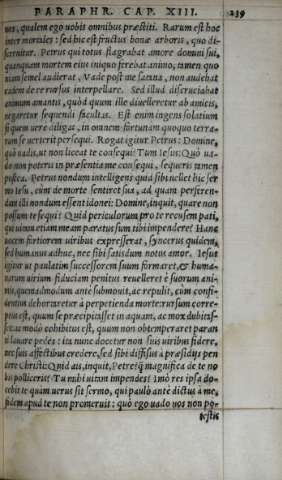 PARAPHR. CAP. XIII. 239
nes, qualem ego uobis omnibus præstiti. Rarum est hoc
inter mortales: sed hic est fructus bonæ arboris, quo di-
scernitur. Petrus qui totus flagrabat amore domini sui,
quanquam mortem eius iniquo ferebat animo, tamen quo
niam semel audierat, Vade post me satana, non audebat
eadem de re rursus interpellare. Sed illud discruciabat
animum amantis, quòd quum ille diuelleretur ab amicis,
negaretur sequendi facultas. Est enim ingens solatium
si quem uere diligat, in omnem fortunam quoquo terra-
rum se uerterit persequi. Rogat igitur Petrus: Domine,
quò uadis, ut non liceat te consequi? Tum Iesus: Quò ua-
do non poteris in præsentia me consequi, sequeris tamen
postea. Petrus nondum intelligens quid sibi uellet hic ser
mo Iesu, eum de morte sentiret sua, ad quam perferen-
dam illi nondum essent idonei: Domine, inquit, quare non
possum te sequi? Quid periculorum pro te recusem pati,
qui uitam etiam meam paratus sum tibi impendere? Hanc
uocem fortiorem uiribus expresserat, syncerus quidem,
sed humanus adhuc, nec sibi satis dum notus amor. Iesus
igitur ut paulatim successorem suum formaret, & huma-
narum uirium fiduciam penitus reuelleret è suorum ani-
mis, quemadmodum ante submouit, ac repulit, cum confi-
dentius dehortaretur à perpetienda morte: rursum corre-
ptus est, quum se præcipitasset in aquam, ac mox dubitas-
set: ad modum cohibitus est, quum non obtemperaret paran
ti lauare pedes: ita nunc docetur non suis uiribus fidere,
nec suis affectibus credere, sed sibi diffisus à præsidijs pen
dere Christi: Quid ais, inquit, Petre? quàm magnifica de te no
bis polliceris? Tu mihi uitam impendes? Imò res ipsa do-
cebit te quàm uerus sit sermo, qui paulò antè dictus à me,
fidem apud te non promeruit: quò ego uado uos non po-
testis